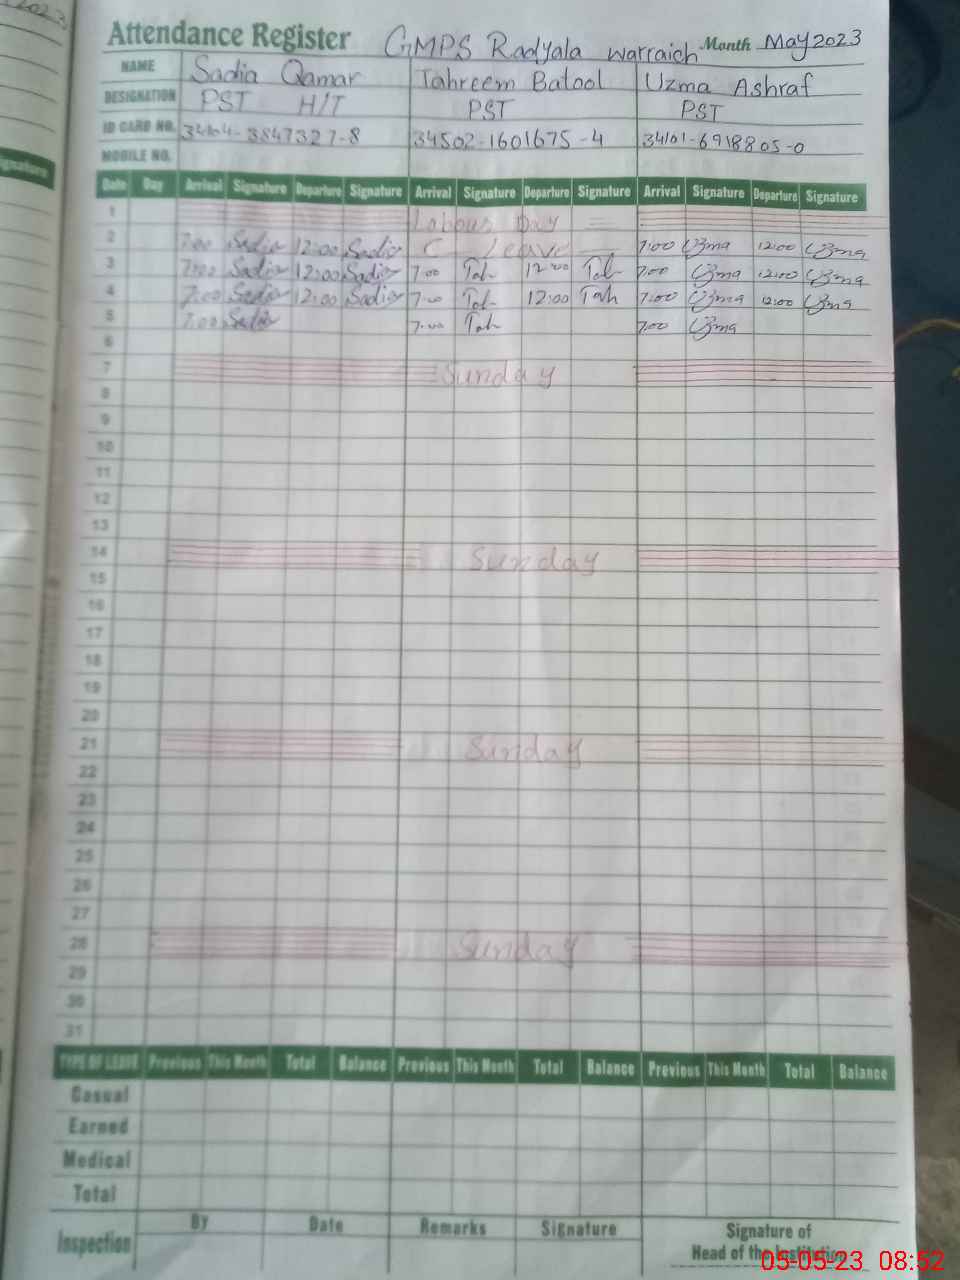 2023
Attendance Register GMPS Radyala warraich Month May 2023
NAME Sadia Qamar Tahreem Batool Uzma Ashraf
DESIGNATION PST H/T PST PST
ID CARD NO. 34104-3847327-8 34502-1601675-4 34101-6918805-0
MOBILE NO.
Signature
Date Day Arrival Signature Departure Signature Arrival Signature Departure Signature Arrival Signature Departure Signature
1 Labour Day
2 7:00 Sadia 12:00 Sadia C Leave 7:00 Uzma 12:00 Uzma
3 7:00 Sadia 12:00 Sadia 7:00 Tah 12:00 Tah 7:00 Uzma 12:00 Uzma
4 7:00 Sadia 12:00 Sadia 7:00 Tah 12:00 Tah 7:00 Uzma 12:00 Uzma
5 7:00 Sadia 7:00 Tah 7:00 Uzma
6
7 Sunday
8
9
10
11
12
13
14 Sunday
15
16
17
18
19
20
21 Sunday
22
23
24
25
26
27
28 Sunday
29
30
31
TYPE OF LEAVE Previous This Month Total Balance Previous This Month Total Balance Previous This Month Total Balance
Casual
Earned
Medical
Total
Inspection By Date Remarks Signature Signature of
Head of the Institution
05-05-23 08:52